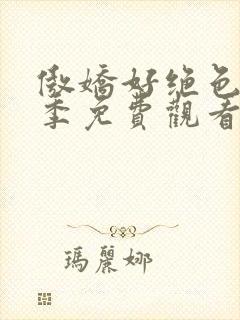 傲嬌好绝色
季免費觀看
瑪麗娜